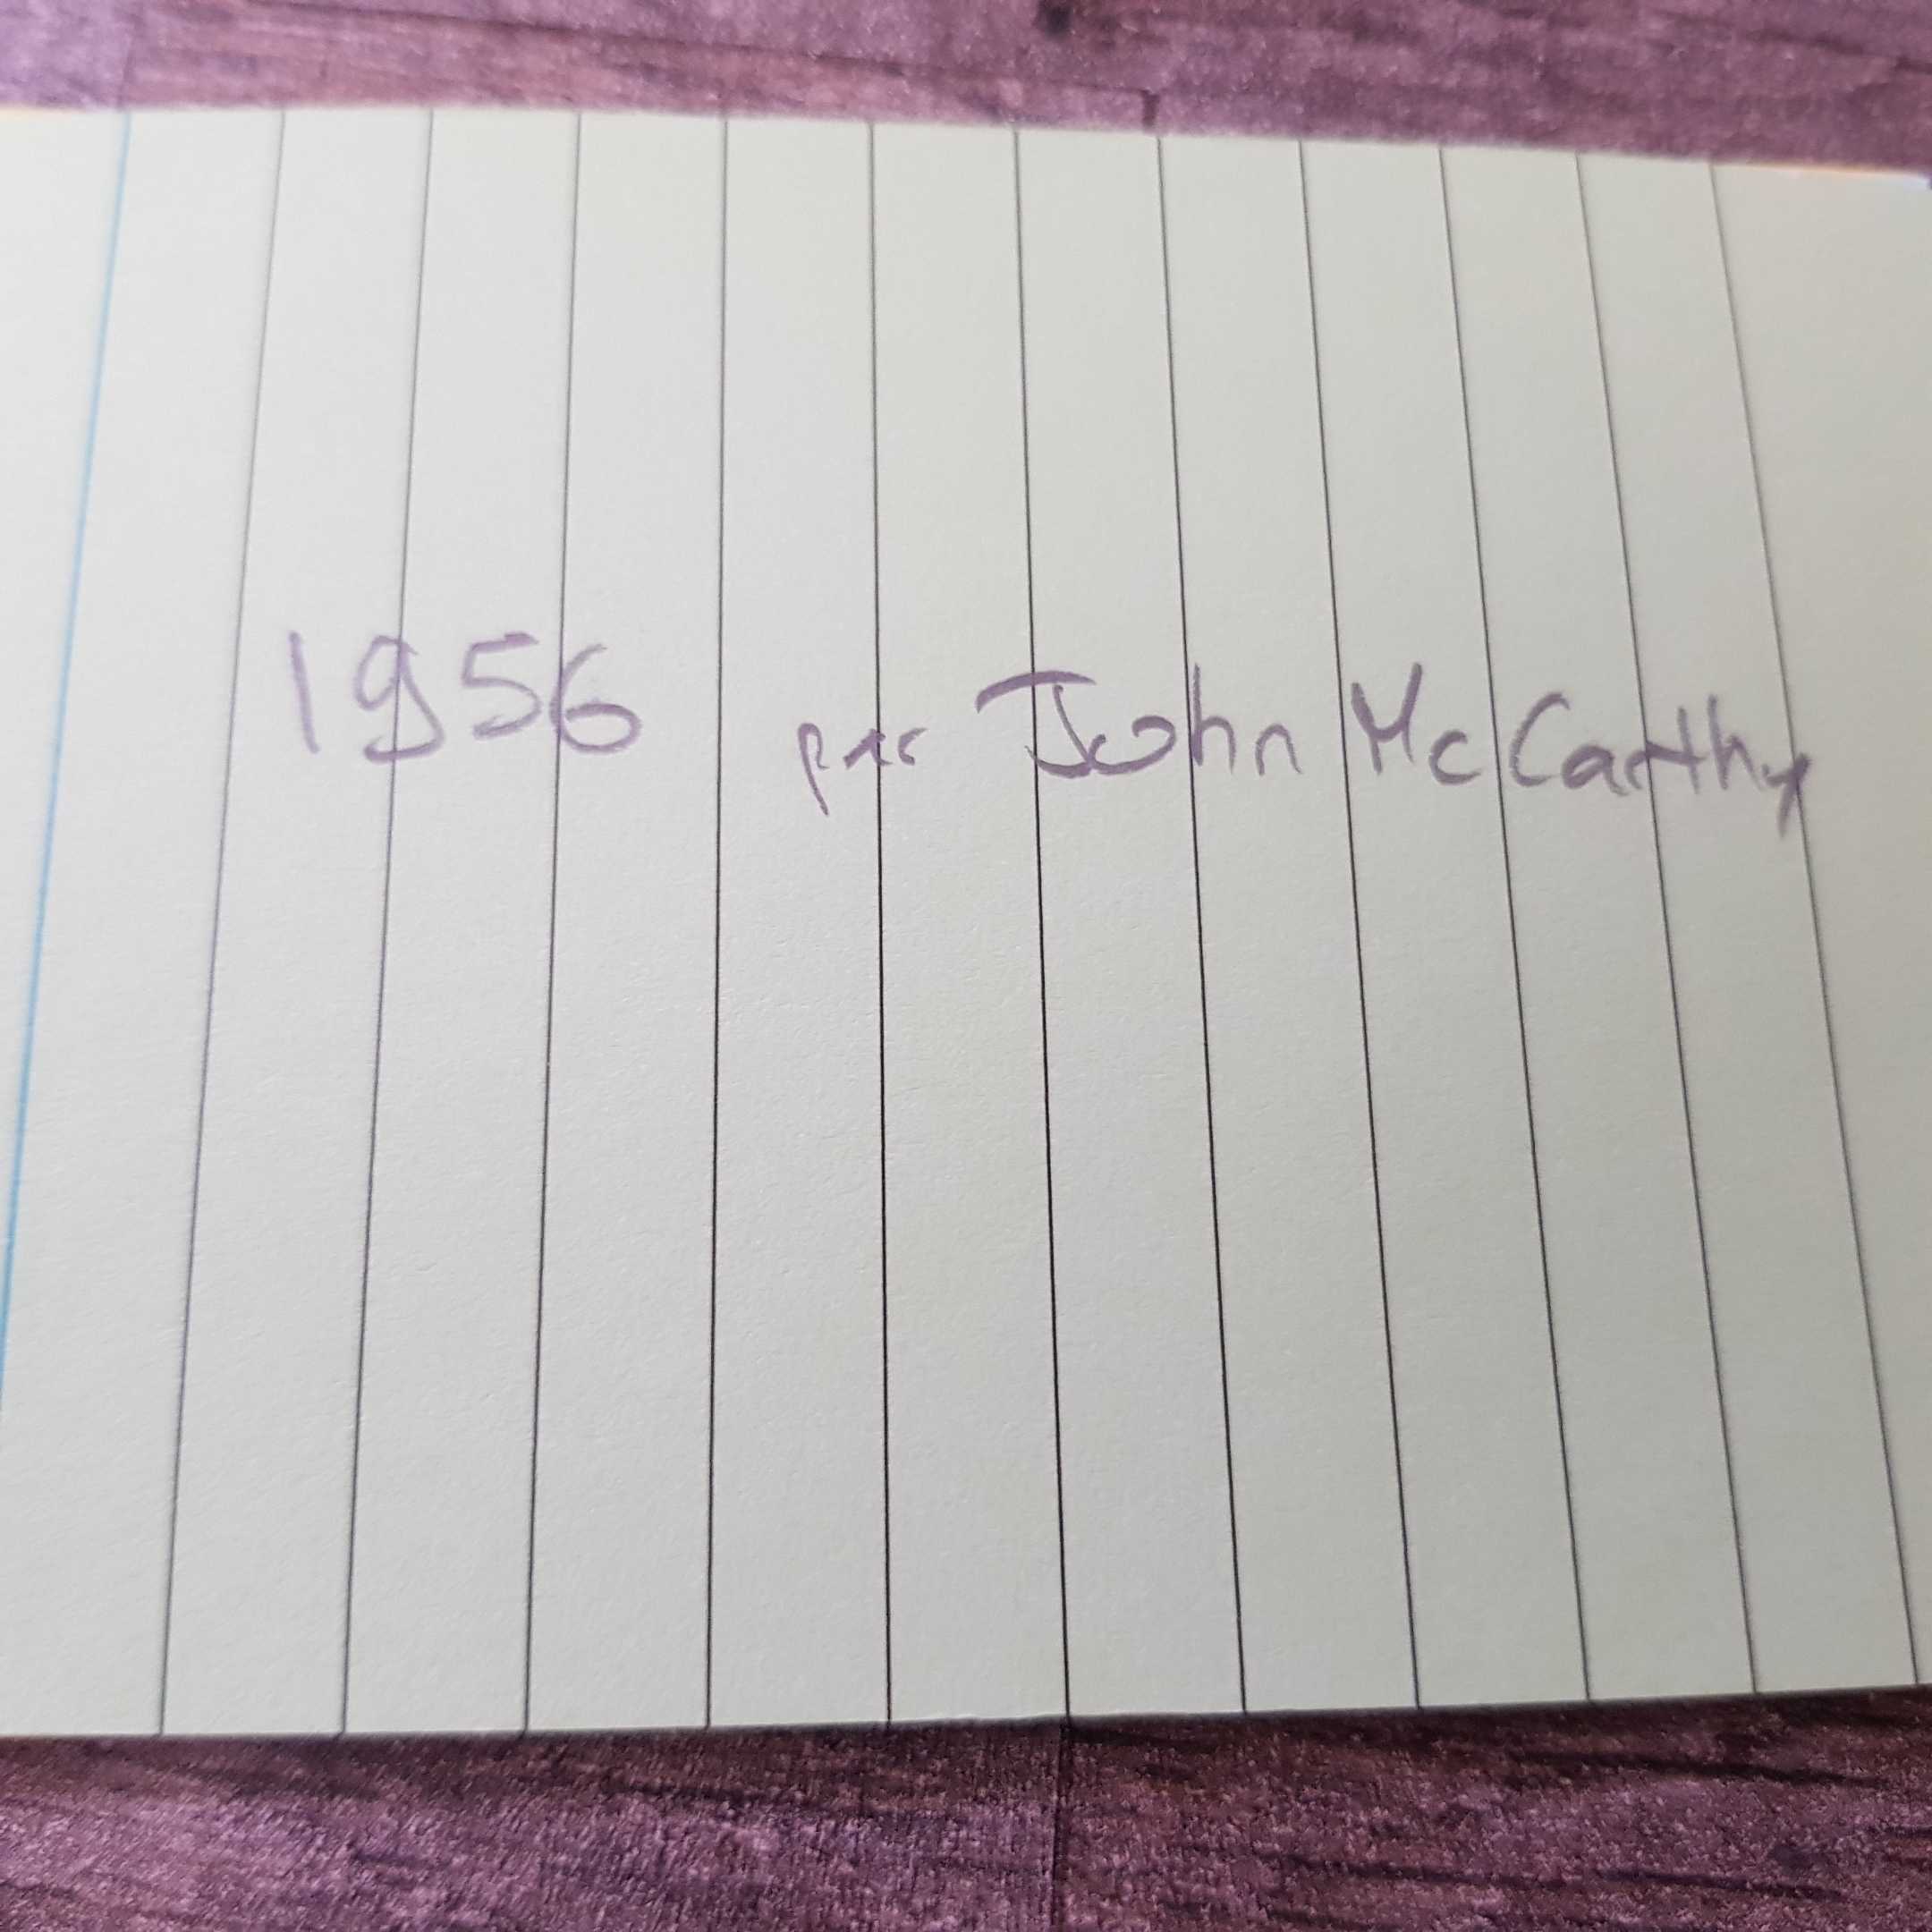 1956 par John McCarthy